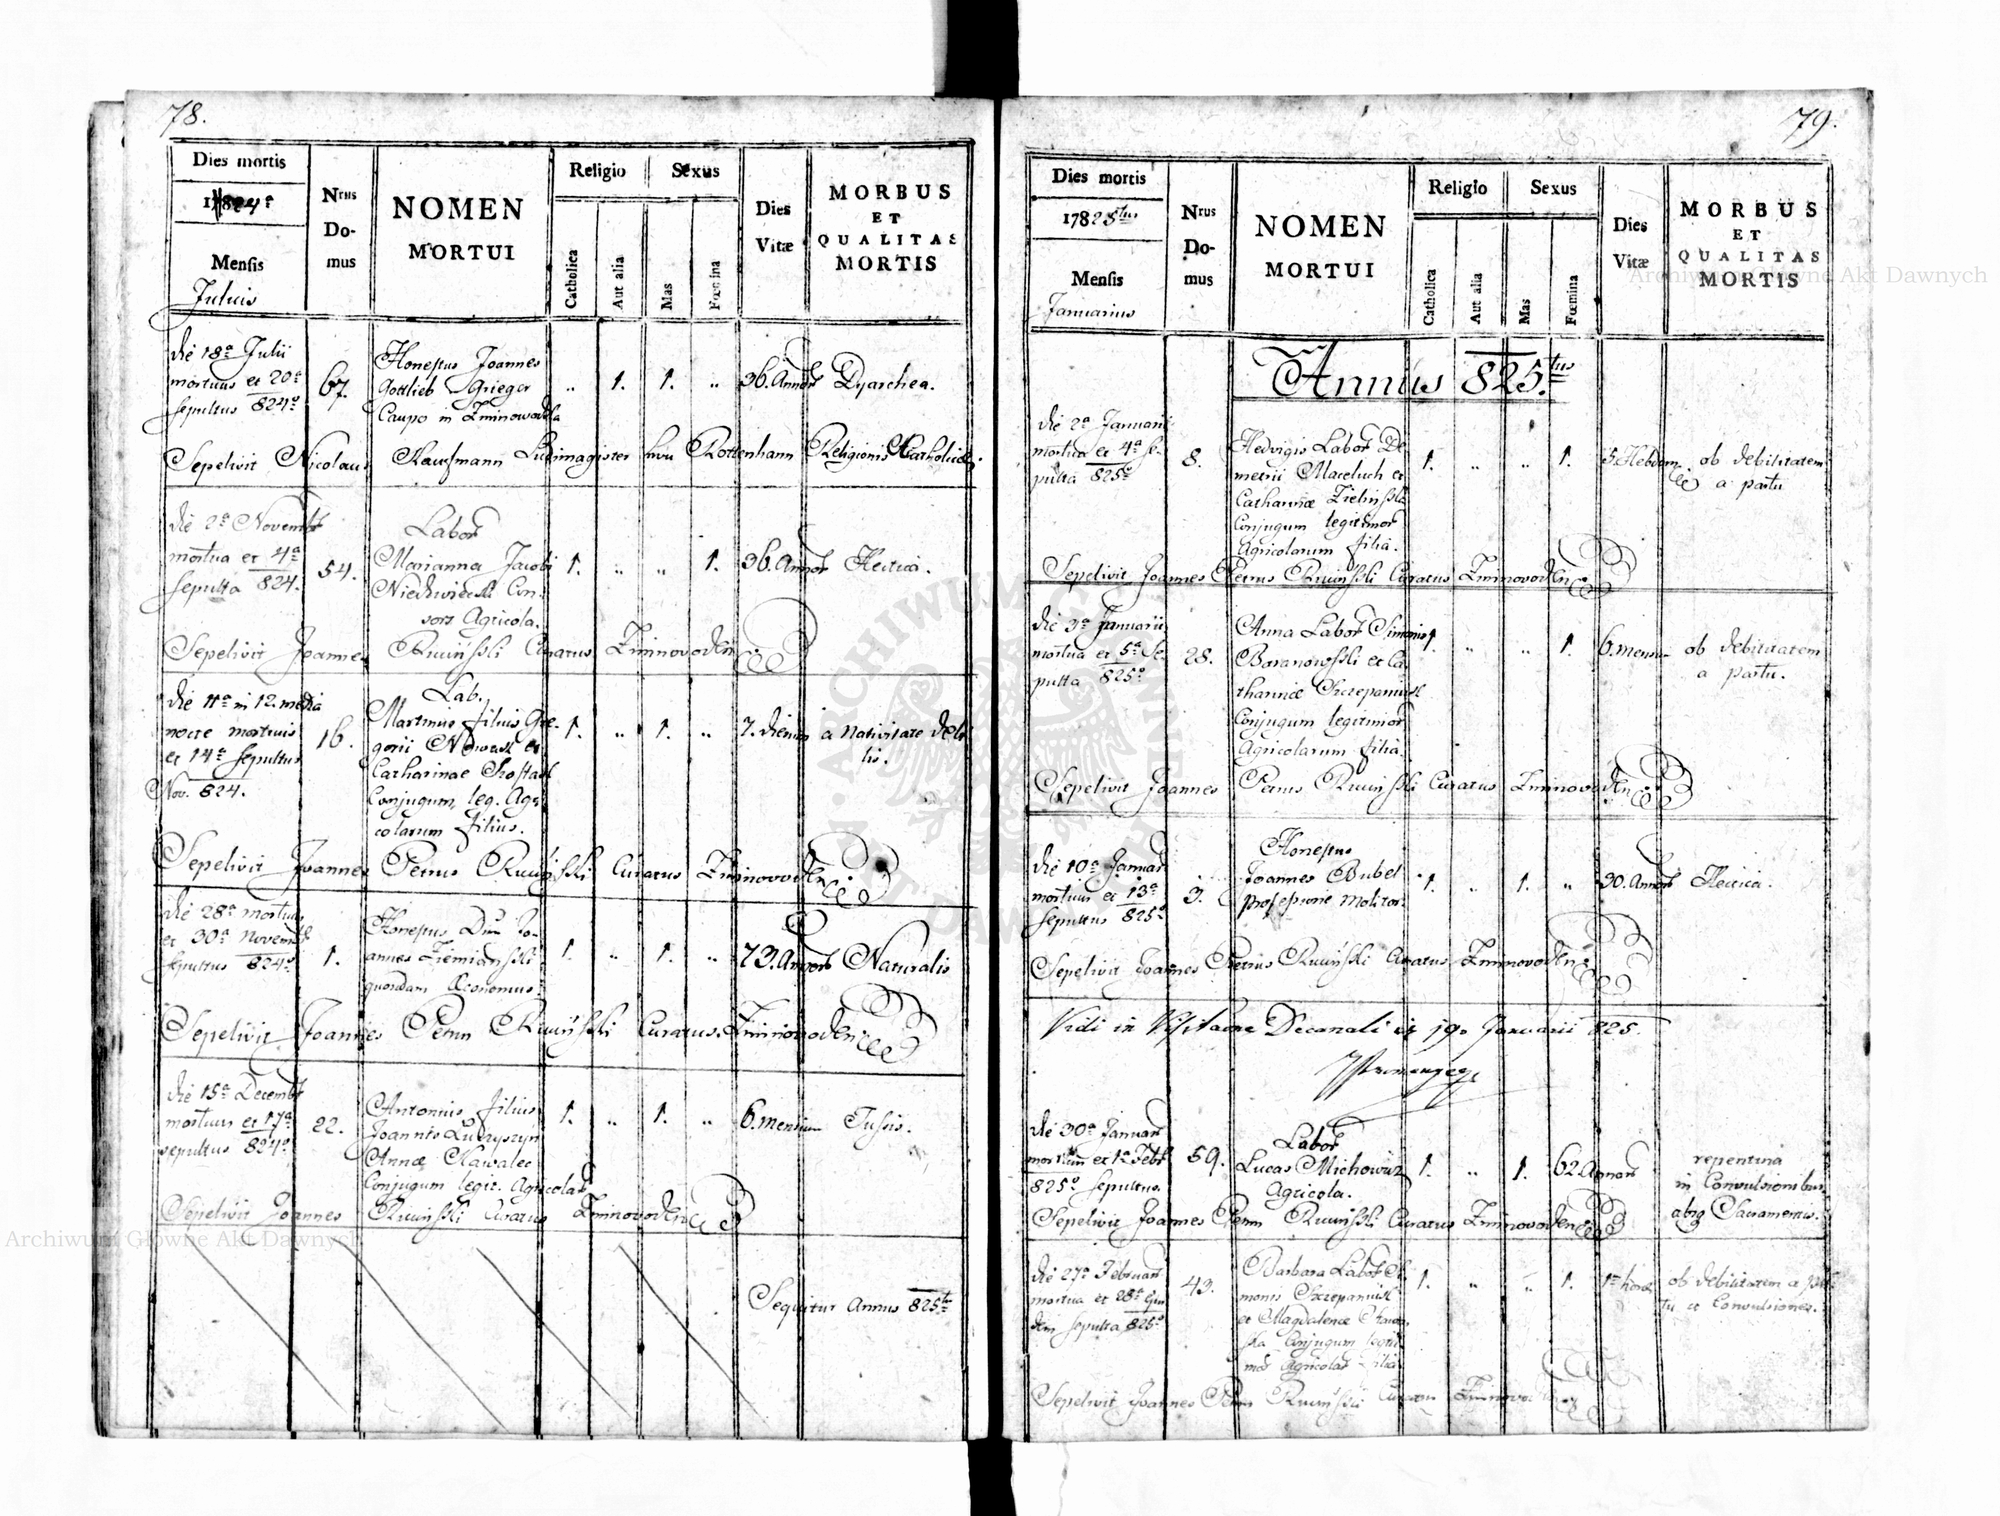 78.
Dies mortis
Mensis
Julius
Nrus
Do-
mus
NOMEN
MORTUI
Religio
Catholica
Aut alia
Sexus
Mas
Fœmina
Dies
Vitæ
MORBUS
ET
QUALITAS
MORTIS
die 18a Julii
mortuus et 20a
sepultus 824o
67.
Honestus Joannes
Gottlieb Grieger
Caupo in
„
1.
1.
„
36. Annor
Dyarhea.
Sepelivit Nicolaus Kaufmann Ludimagister Rottenhann Religionis
die 2a Novembr
mortua et 4a
sepulta 824.
54.
Labor
Marianna Jacobi
Niedzwiecki Con-
sors Agricola.
1.
„
„
1.
36. Annor
Hectica.
Sepelivit Joannes Ruciński Curatus Zminovoden
die 11a in 12. media
nocte mortuus
et 14a sepultus
Nov. 824.
16.
Lab.
Martinus filius Gre-
gorii Nowak et
Catharinae
Conjugum, leg. Agri
colarum filius.
1.
„
1.
„
7. dierum
a Nativitate debi
lis.
Sepelivit Joannes Petrus Ruciński Curatus Zminovoden
die 28a mortuus
et 30a Novemb
sepultus 824o
1.
Honestus Dnus Jo-
annes Ziemiański
quondam Œconomus.
1.
„
1.
„
73. Annor
Naturalis
Sepelivit Joannes Petrus Ruciński Curatus Zminovoden
die 15a Decembr
mortuus et 17a
sepultus 824o
22.
Antonius filius
Joannis
Annæ Kawalec
Conjugum legit. Agricolar
1.
„
1.
„
6. mensium
Tussis.
Sepelivit Joannes Ruciński Curatus Zminovoden
Sequitur Annus 825tus
79.
Dies mortis
17825tus
Mensis
Januarius
Nrus
Do-
mus
NOMEN
MORTUI
Religio
Catholica
Aut alia
Sexus
Mas
Fœmina
Dies
Vitæ
MORBUS
ET
QUALITAS
MORTIS
Annus 825tus
die 2a Januarii
mortua et 4a Se-
pulta 825o
8.
Hedvigis Labor De
metrii Maceluch et
Catharinæ Zielińska
Conjugum legitimor
Agricolarum filia.
1.
„
„
1.
5. Hebdom
ob debilitatem
a partu
Sepelivit Joannes Petrus Ruciński Curatus Zminovoden
die 3a Januarii
mortua et 5a Se-
pulta 825o
28.
Anna Labor Simonis
Baranowski et Ca
tharinæ Szczepaniak
Conjugum legitimor
Agricolarum filia.
1.
„
„
1.
6. mens
ob debilitatem
a partu.
Sepelivit Joannes Petrus Ruciński Curatus Zminovoden
die 10a Januar
mortuus et 13a
sepultus 825o
3.
Honestus
Joannes Bubel
professione Molitor.
1.
„
1.
„
30. Annor
Hectica.
Sepelivit Joannes Petrus Ruciński Curatus Zminovoden
Vidi in Visitatione Decanali die 19. Januarii 825.
die 30a Januar
mortuus et 1a Febr
825o sepultus.
59.
Labor
Lucas Michowicz
Agricola.
1.
„
1.
62. Annor
repentina
in Convulsionibus
absq Sacramentis.
Sepelivit Joannes Petrus Ruciński Curatus Zminovoden
die 27a Februar
mortua et 28a ejus
dem sepulta 825o
43.
Barbara Labor Si
monis Szczepaniak
et Magdalenæ
Conjugum legiti
mor Agricolar filia
1.
„
„
1.
1. horæ
ob debilitatem a par
tu et Convulsiones.
Sepelivit Joannes Petrus Ruciński Curatus
Archiwum Główne Akt Dawnych
Archiwum Główne Akt Dawnych
ARCHIWUM GŁÓWNE AKT DAWNYCH